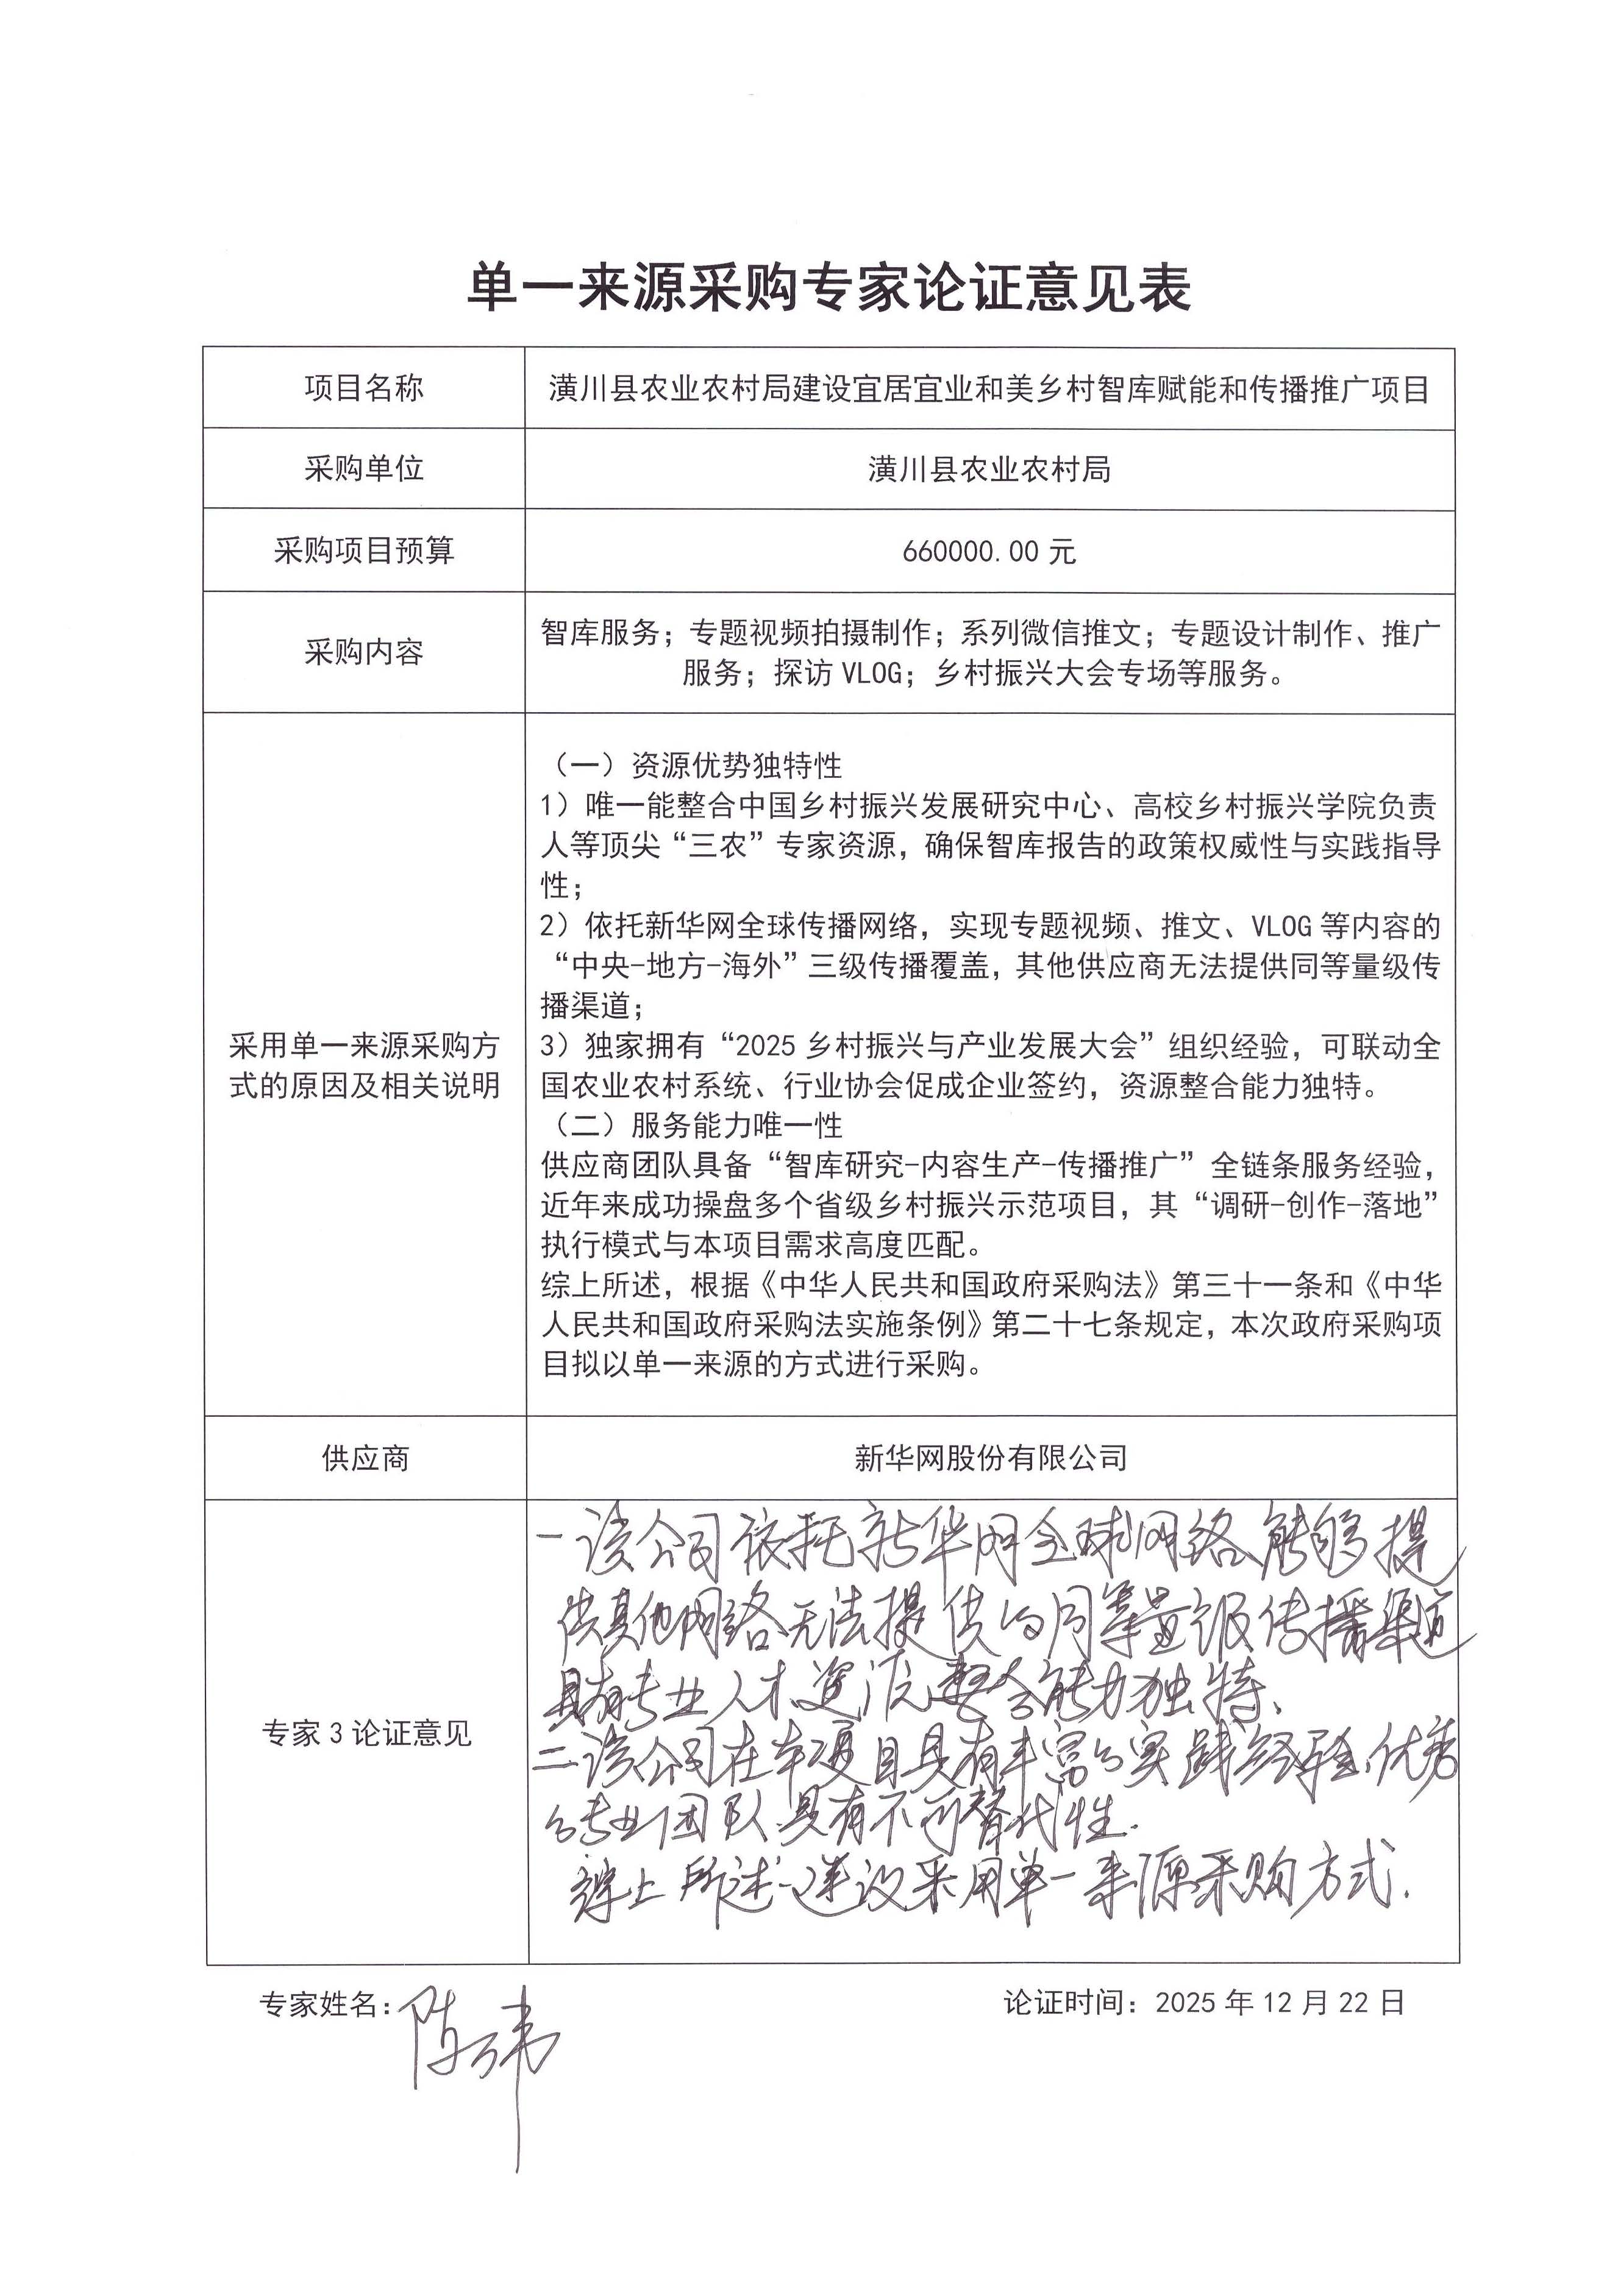 单一来源采购专家论证意见表
项目名称
潢川县农业农村局建设宜居宜业和美乡村智库赋能和传播推广项目
采购单位
潢川县农业农村局
采购项目预算
660000.00 元
采购内容
智库服务；专题视频拍摄制作；系列微信推文；专题设计制作、推广
服务；探访 VLOG；乡村振兴大会专场等服务。
采用单一来源采购方
式的原因及相关说明
（一）资源优势独特性
1）唯一能整合中国乡村振兴发展研究中心、高校乡村振兴学院负责
人等顶尖“三农”专家资源，确保智库报告的政策权威性与实践指导
性；
2）依托新华网全球传播网络，实现专题视频、推文、VLOG 等内容的
“中央-地方-海外”三级传播覆盖，其他供应商无法提供同等量级传
播渠道；
3）独家拥有“2025 乡村振兴与产业发展大会”组织经验，可联动全
国农业农村系统、行业协会促成企业签约，资源整合能力独特。
（二）服务能力唯一性
供应商团队具备“智库研究-内容生产-传播推广”全链条服务经验，
近年来成功操盘多个省级乡村振兴示范项目，其“调研-创作-落地”
执行模式与本项目需求高度匹配。
综上所述，根据《中华人民共和国政府采购法》第三十一条和《中华
人民共和国政府采购法实施条例》第二十七条规定，本次政府采购项
目拟以单一来源的方式进行采购。
供应商
新华网股份有限公司
专家 3 论证意见
一该公司依托新华网全球网络能够提
供其他网络无法提供的同等量级传播渠道
具有专业人才资源整合能力独特、
二该公司在本项目具有丰富的实践经验、优秀
的专业团队具有不可替代性.
综上所述、建议采用单一来源采购方式.
专家姓名：陈
论证时间：2025 年 12 月 22 日